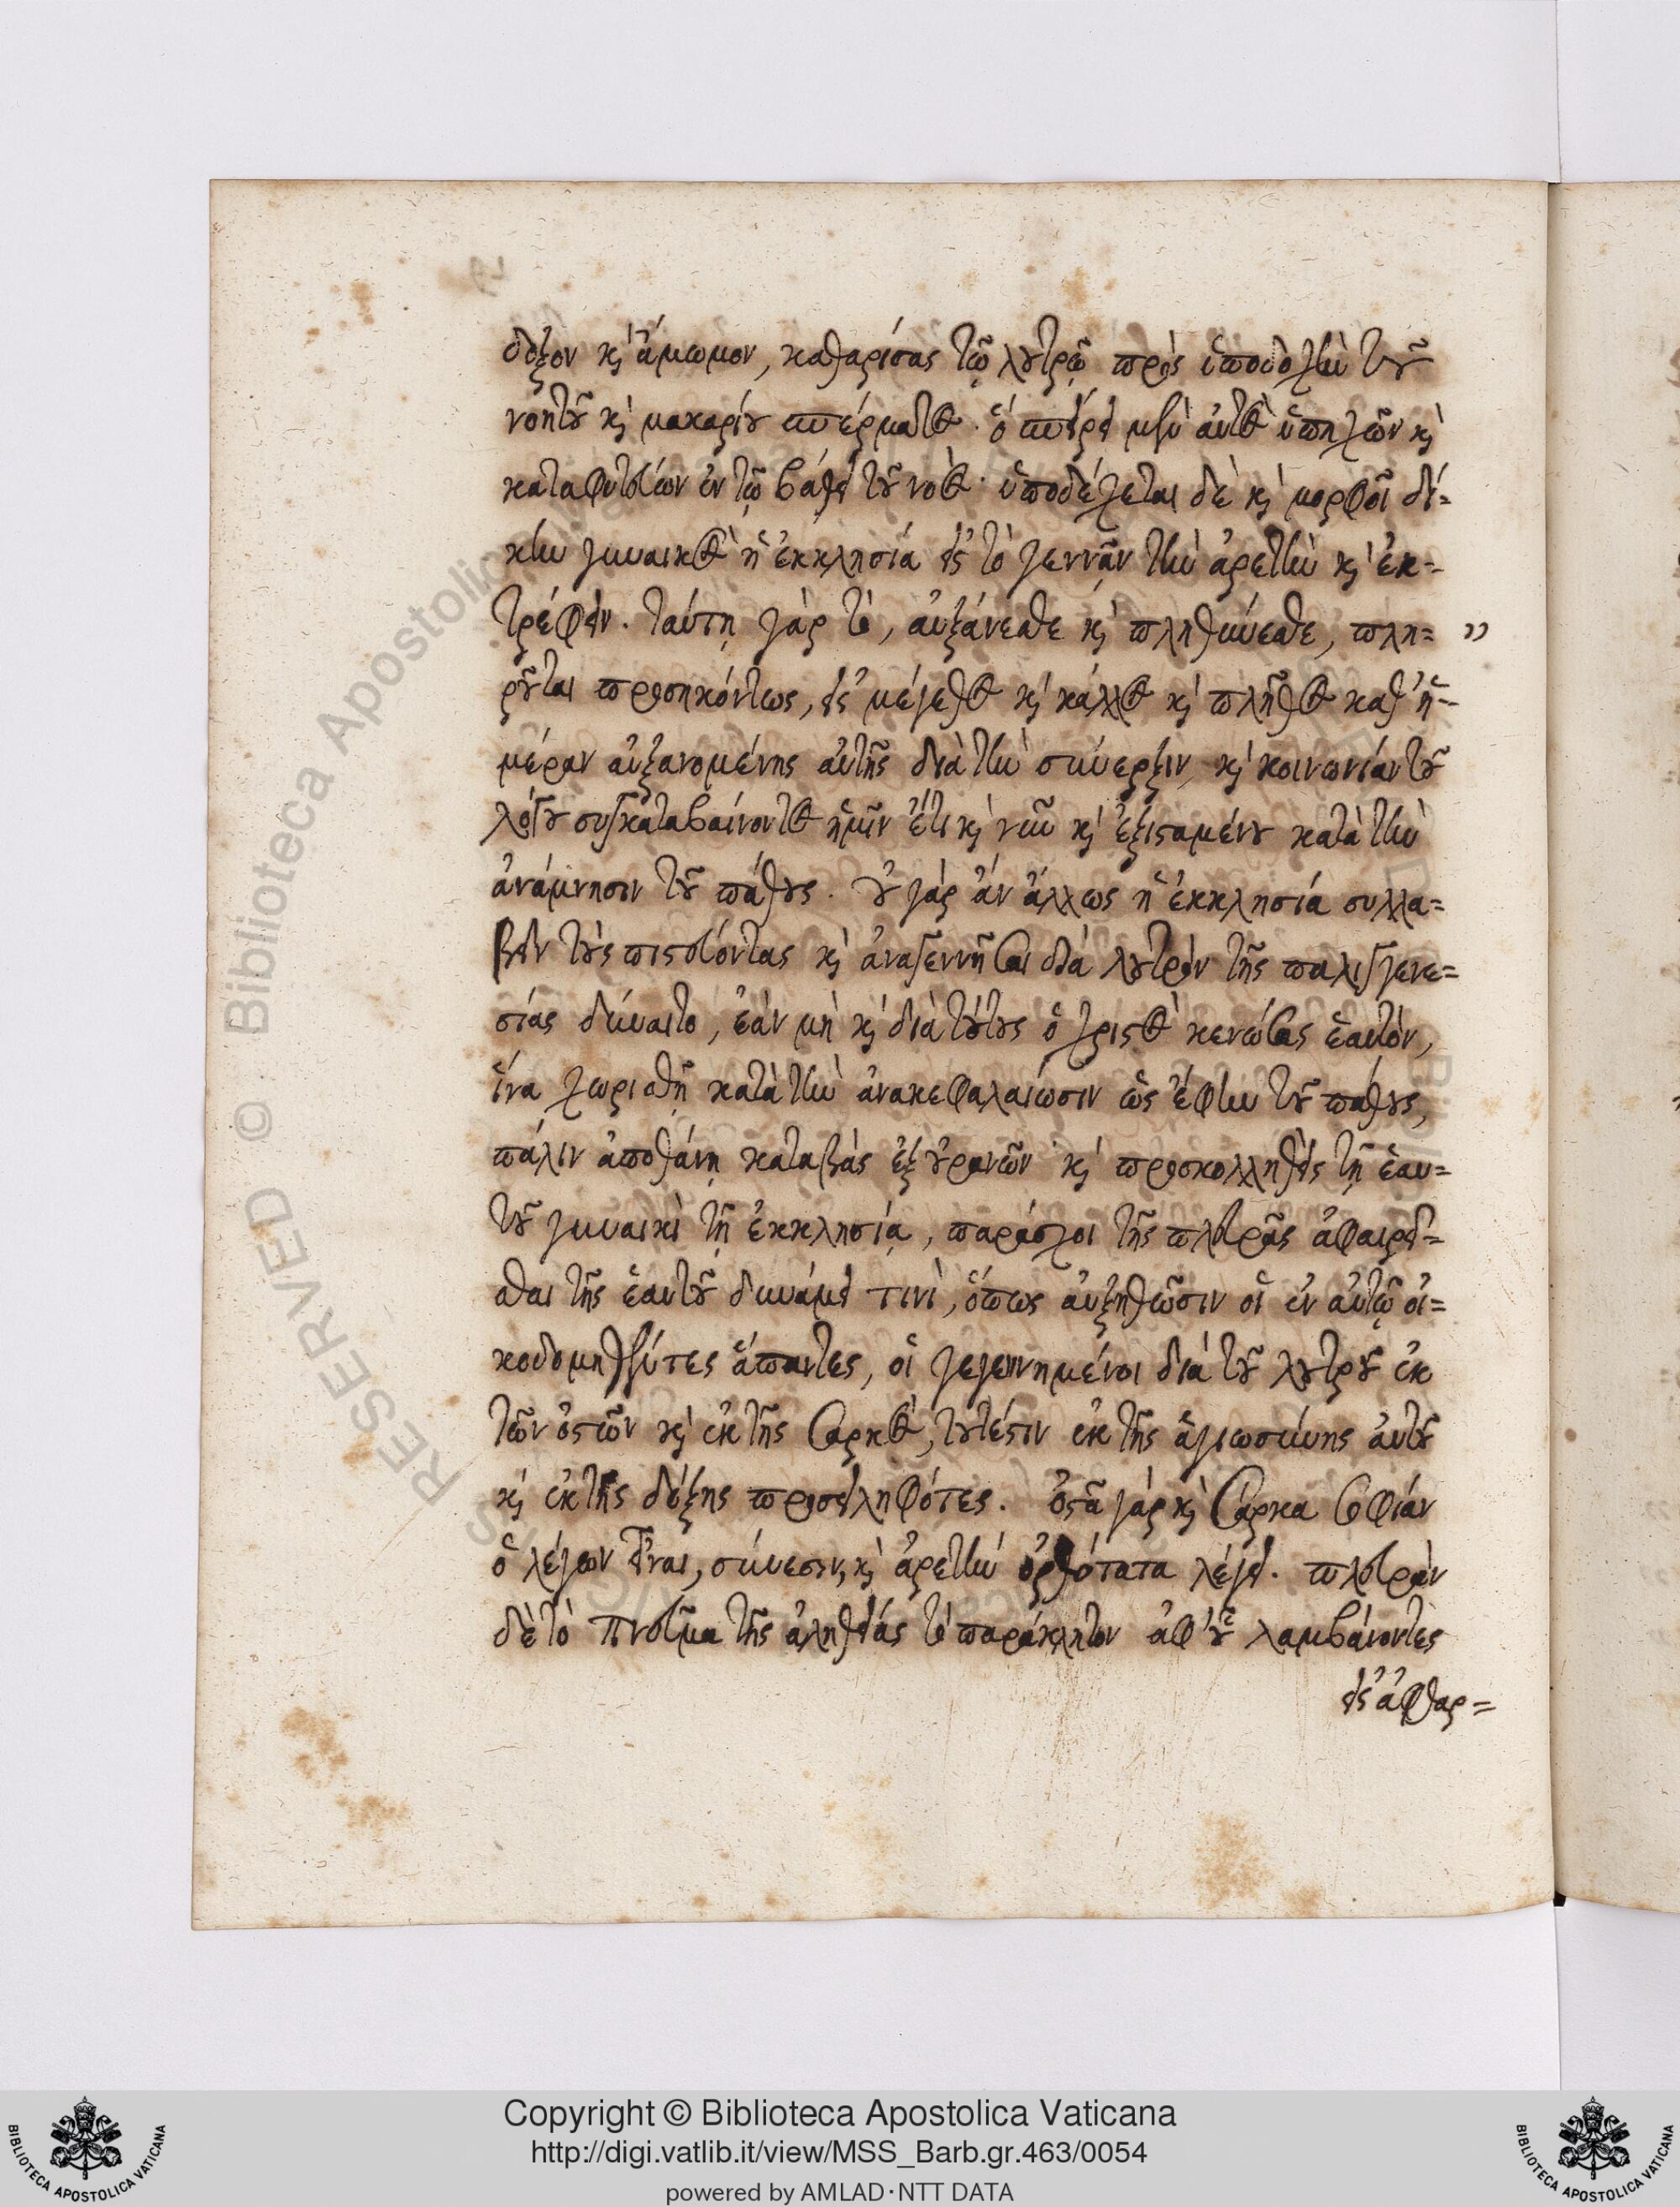 δοξον κ̀ ἄμωμον, καθαρίσας τῷ λουτρῷ πρὸς ὑποδοχὴν τοῦ
νοητοῦ κ̀ μακαρίου σπέρματος. ὃ σπείρει μὲν αὐτὸς ὑπηχῶν κ̀
καταφυτεύων ἐν τῷ βάθει τοῦ νοός. ὑποδέχεται δὲ κ̀ μορφοῖ δί=
κην γυναικὸς ἡ ἐκκλησία εἰς τὸ γεννᾷν τὴν ἀρετὴν κ̀ ἐκ=
τρέφειν. ταύτῃ γὰρ τὸ, αὐξάνεσθε κ̀ πληθύνεσθε, πλη= »
ροῦται προσηκόντως, εἰς μέγεθος κ̀ κάλλος κ̀ πλῆθος καθ' ἡ=
μέραν αὐξανομένης αὐτῆς διὰ τὴν σύνερξιν κ̀ κοινωνίαν τοῦ
λόγου συγκαταβαίνοντος ἡμῖν ἔτι κ̀ νῦν κ̀ ἐξισταμένου κατὰ τὴν
ἀνάμνησιν τοῦ πάθους. οὐ γὰρ ἂν ἄλλως ἡ ἐκκλησία συλλα=
βεῖν τοὺς πιστεύοντας κ̀ ἀναγεννῆσαι διὰ λουτρὸν τῆς παλιγγενε=
σίας δύναιτο, ἐὰν μὴ κ̀ διὰ τούτους ὁ χριστὸς κενώσας ἑαυτὸν,
ἵνα χωρισθῇ κατὰ τὴν ἀνακεφαλαίωσιν ὡς ἔφην τοῦ πάθους,
πάλιν ἀποθάνῃ καταβὰς ἐξ οὐρανῶν κ̀ προσκολληθεὶς τῇ ἑαυ=
τοῦ γυναικὶ τῇ ἐκκλησίᾳ, παράσχοι τῆς πλευρᾶς ἀφαιρεῖ=
σθαι τῆς ἑαυτοῦ δυνάμει τινὶ, ὅπως αὐξηθῶσιν οἱ ἐν αὐτῷ οἰ=
κοδομηθέντες ἅπαντες, οἱ γεγεννημένοι διὰ τοῦ λουτροῦ ἐκ
τῶν ὀστῶν κ̀ ἐκ τῆς σαρκὸς, τουτέστιν ἐκ τῆς ἁγιωσύνης αὐτοῦ
κ̀ ἐκ τῆς δόξης προσειληφότες. ὀστᾶ γὰρ κ̀ σάρκα σοφίαν
ὁ λέγων εἶναι, σύνεσιν, κ̀ ἀρετὴν ὀρθότατα λέγει. πλευρὰν
δὲ τὸ πνεῦμα τῆς ἀληθείας τὸ παράκλητον ἀφ' οὗ λαμβάνοντες
εἰς ἀφθαρ=
RESERVED © Biblioteca Apostolica
Copyright © Biblioteca Apostolica Vaticana
http://digi.vatlib.it/view/MSS_Barb.gr.463/0054
powered by AMLAD·NTT DATA
BIBLIOTECA APOSTOLICA VATICANA
BIBLIOTECA APOSTOLICA VATICANA